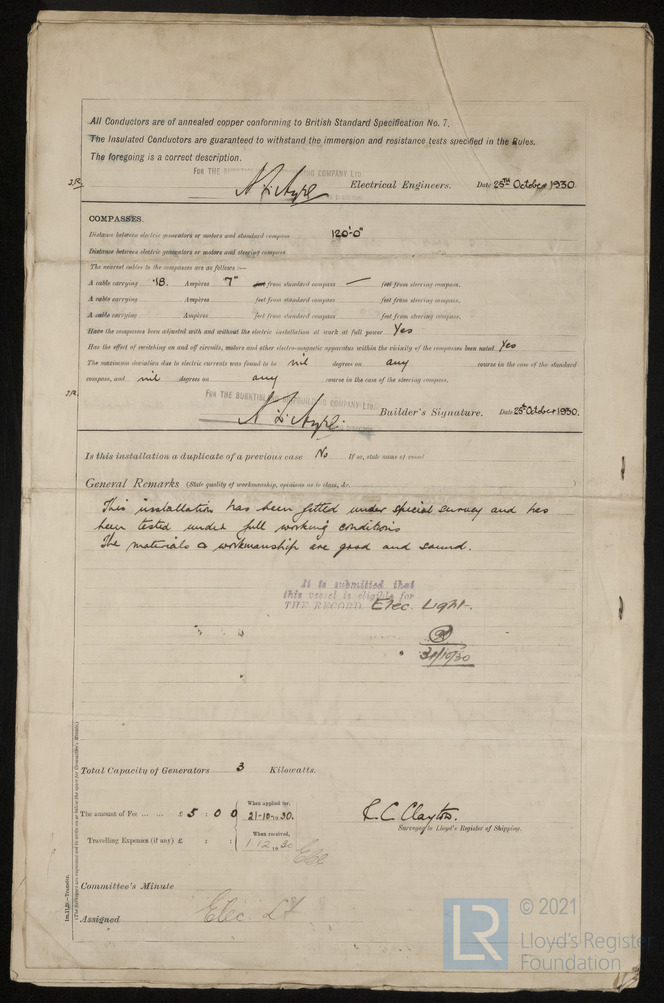 All Conductors are of annealed copper conforming to British Standard Specification No. 7.
The Insulated Conductors are guaranteed to withstand the immersion and resistance tests specified in the Rules.
The foregoing is a correct description.
FOR THE BURNTISLAND SHIPBUILDING COMPANY LTD
Electrical Engineers. Date 25TH October 1930.
COMPASSES.
Distance between electric generators or motors and standard compass 120'-0"
Distance between electric generators or motors and steering compass
The nearest cables to the compasses are as follows:—
A cable carrying .18. Ampères 7" feet from standard compass — feet from steering compass.
A cable carrying Ampères feet from standard compass feet from steering compass.
A cable carrying Ampères feet from standard compass feet from steering compass.
Have the compasses been adjusted with and without the electric installation at work at full power Yes
Has the effect of switching on and off circuits, motors and other electro-magnetic apparatus within the vicinity of the compasses been noted Yes
The maximum deviation due to electric currents was found to be nil degrees on any course in the case of the standard
compass, and nil degrees on any course in the case of the steering compass.
FOR THE BURNTISLAND SHIPBUILDING COMPANY LTD.
Builder's Signature. Date 25th October 1930.
Is this installation a duplicate of a previous case No If so, state name of vessel
General Remarks (State quality of workmanship, opinions as to class, &c.
This installation has been fitted under special survey and has
been tested under full working conditions
The materials & workmanship are good and sound.
It is submitted that
this vessel is eligible for
THE RECORD Elec. Light.
31/10/30
Total Capacity of Generators 3 Kilowatts.
The amount of Fee ... ... £ 5 : 0 0
When applied for,
21-10-1930.
Travelling Expenses (if any) £ : :
When received,
1.12.1930
R. C. Clayton.
Surveyor to Lloyd's Register of Shipping.
Committee's Minute
Assigned Elec. Lt
Im.11.29.—Transfer.
LR
© 2021
Lloyd's Register
Foundation